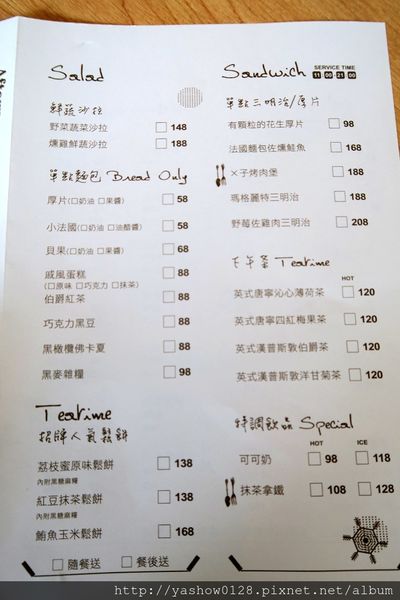 Salad
鮮蔬沙拉
野菜蔬菜沙拉 148
燻雞鮮蔬沙拉 188
單點麵包 Bread Only
厚片(□奶油 □果醬) 58
小法國(□奶油 □油醋醬) 58
貝果(□奶油 □果醬) 68
戚風蛋糕 88
(□原味 □巧克力 □抹茶)
伯爵紅茶 88
巧克力黑豆 88
黑橄欖佛卡夏 88
黑麥雜糧 98
Teatime
招牌人氣鬆餅
荔枝蜜原味鬆餅 138
內附黑糖麻糬
紅豆抹茶鬆餅 138
內附黑糖麻糬
鮪魚玉米鬆餅 168
□ 隨餐送 □ 餐後送
Sandwich SERVICE TIME
11 00 21 00
單點三明治/厚片
有顆粒的花生厚片 98
法國麵包佐燻鮭魚 168
×子烤肉堡 188
瑪格麗特三明治 188
野莓佐雞肉三明治 208
下午茶 Teatime
HOT
英式唐寧沁心薄荷茶 120
英式唐寧四紅梅果茶 120
英式漢普斯敦伯爵茶 120
英式漢普斯敦洋甘菊茶 120
特調飲品 Special
HOT ICE
可可奶 98 118
抹茶拿鐵 108 128
http://yashow0128.pixnet.net/album